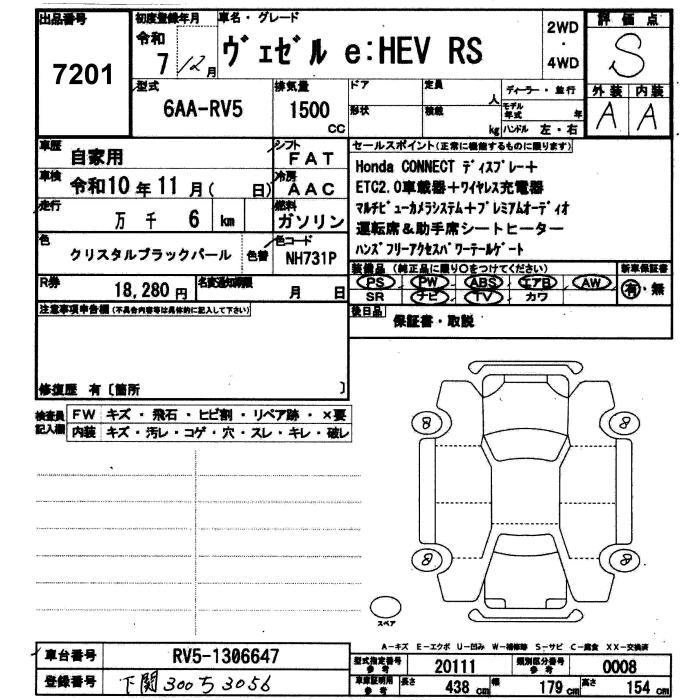 出品番号
7201
初度登録年月
令和
7 / 12月
車名・グレード
ヴェゼル e:HEV RS
2WD
・
4WD
評価点
S
外装 内装
A A
型式
6AA-RV5
排気量
1500
CC
ドア
形状
定員
人
積載
kg
ディーラー・並行
モデル年式 年
ハンドル 左・右
車歴
自家用
シフト
FAT
車検
令和10年11月( 日)
冷房
AAC
走行
万 千 6 km
燃料
ガソリン
色
クリスタルブラックパール
色替
色コード
NH731P
R券
18,280円
名変通知期限
月 日
セールスポイント(正常に機能するものに限ります)
Honda CONNECT ディスプレー+
ETC2.0車載器+ワイヤレス充電器
マルチビューカメラシステム+プレミアムオーディオ
運転席&助手席シートヒーター
ハンズフリーアクセスパワーテールゲート
装備品 (純正品に限り○をつけてください)
新車保証書
PS PW ABS エアB AW
SR ナビ TV カワ
有・無
後日品
保証書・取説
注意事項申告欄(不具合内容等は具体的に記入して下さい)
修復歴 有〔箇所 〕
検査員記入欄
FW キズ・飛石・ヒビ割・リペア跡・×要
内装 キズ・汚レ・コゲ・穴・スレ・キレ・破レ
8 8
8 8
スペア
A-キズ E-エクボ U-凹み W-補修跡 S-サビ C-腐食 XX-交換済
車台番号
RV5-1306647
登録番号
下関300ち3056
型式指定番号参考
20111
類別区分番号参考
0008
車庫証明用参考
長さ 438 cm
幅 179 cm
高さ 154 cm